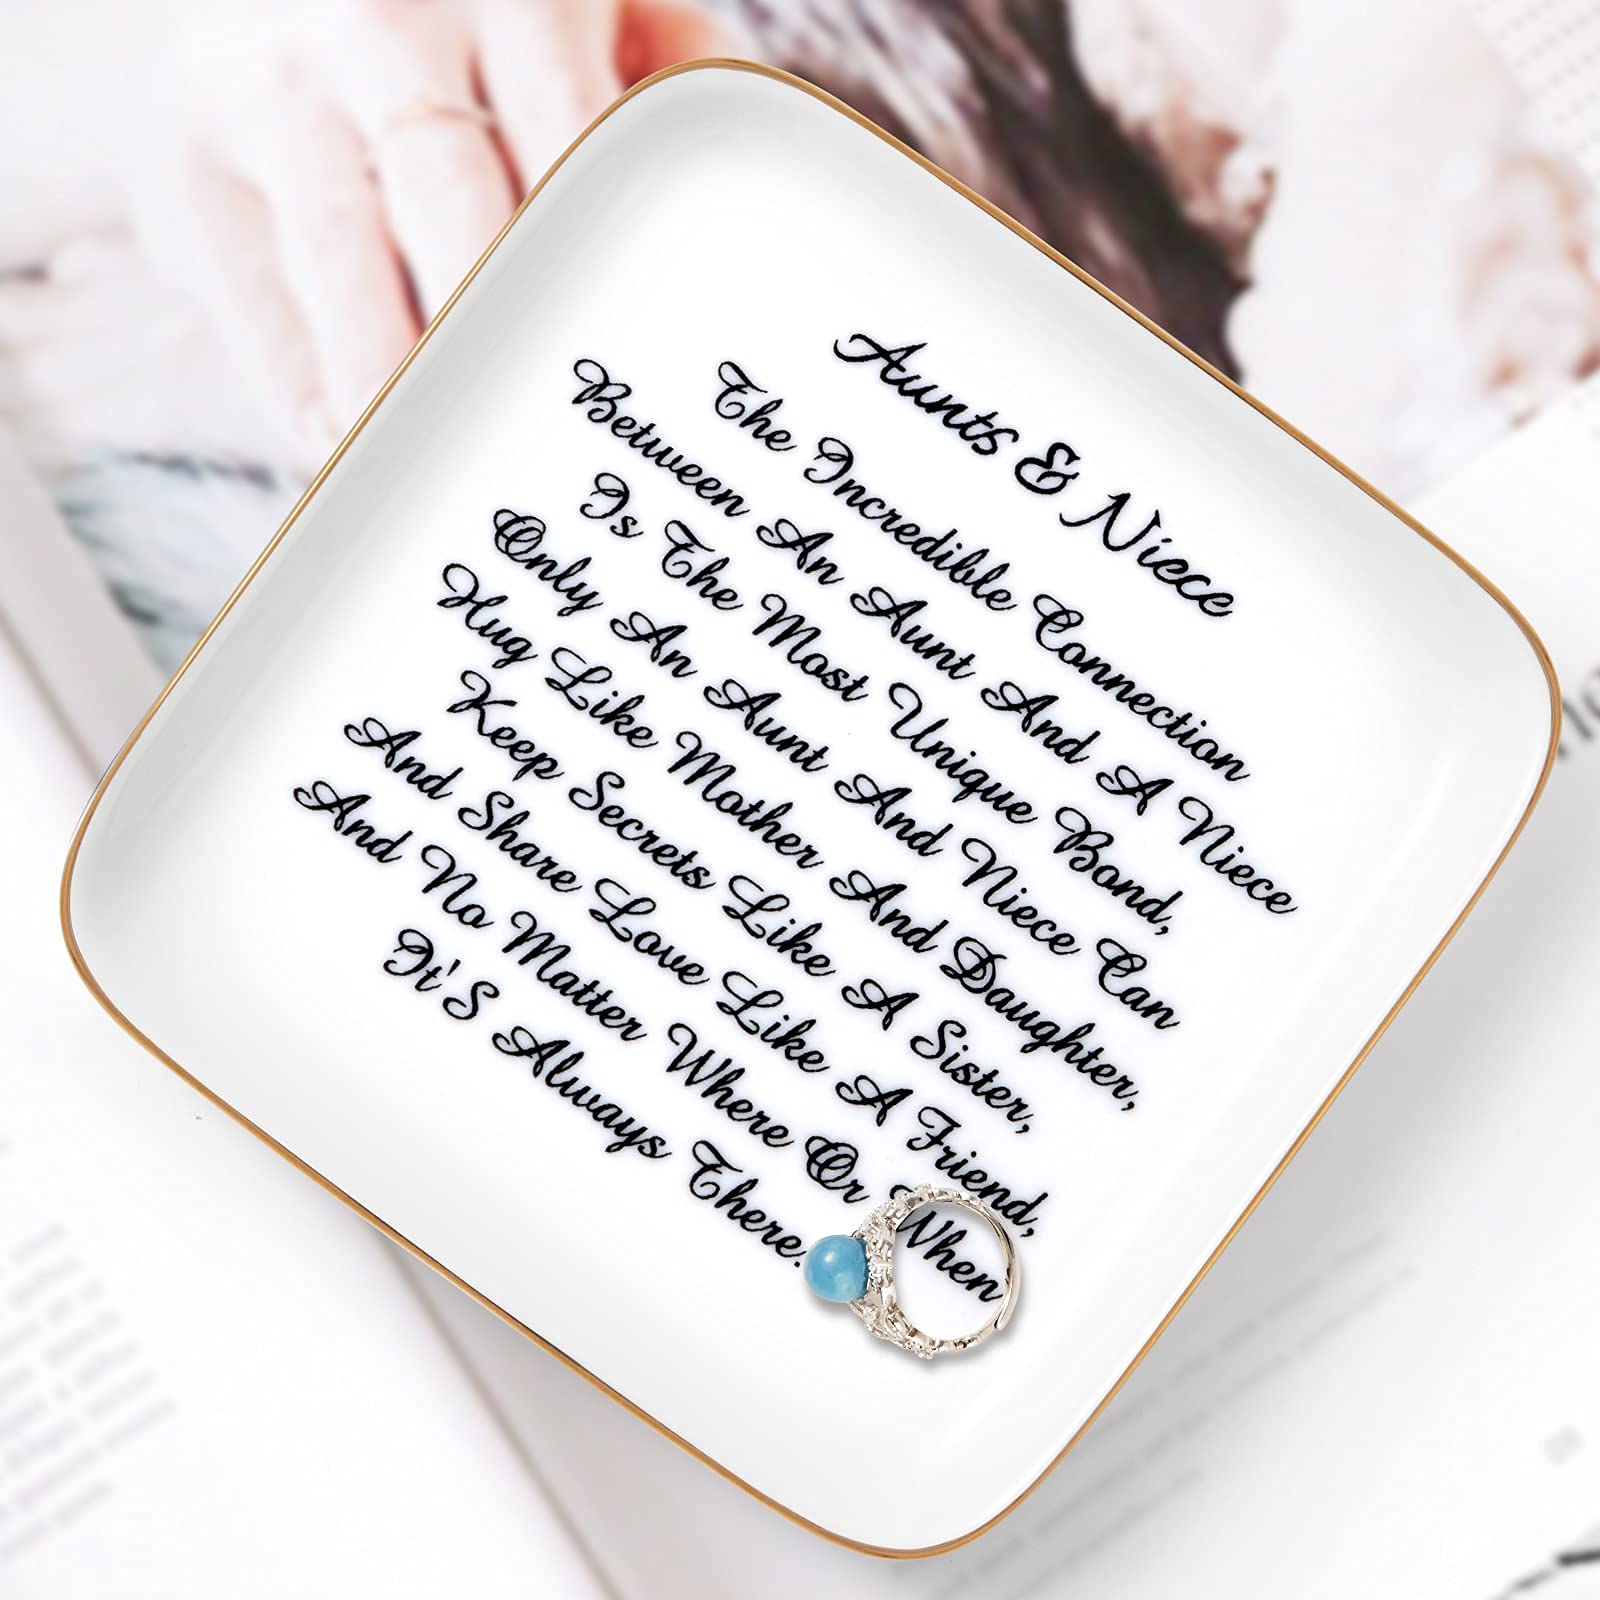 Aunts & Niece
The Incredible Connection
Between An Aunt And A Niece
Is The Most Unique Bond,
Only An Aunt And Niece Can
Hug Like Mother And Daughter,
Keep Secrets Like A Sister,
And Share Love Like A Friend,
And No Matter Where Or When
It'S Always There.